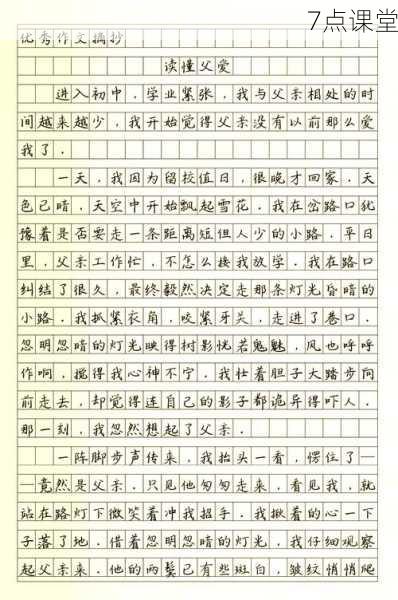 7点课堂
优秀作文摘抄
读懂父爱
进入初中，学业紧张，我与父亲相处的时
间越来越少，我开始觉得父亲没有以前那么爱
我了．
一天，我因为留校值日，很晚才回家．天
色已暗，天空中开始飘起雪花．我在岔路口犹
豫着是否要走一条距离短但人少的小路．平日
里，父亲工作忙，不怎么接我放学．我在路口
纠结了很久，最终毅然决定走那条灯光昏暗的
小路．我抓紧衣角，咬紧牙关，走进了巷口．
忽明忽暗的灯光映得树影恍若鬼魅，风也呼呼
作响，搅得我心神不宁．我壮着胆子大踏步向
前走去，却觉得连自己的影子都诡异得吓人．
那一刻，我忽然想起了父亲．
一阵脚步声传来，我抬头一看，愣住了—
—竟然是父亲．只见他匆匆走来，看见我，就
站在路灯下微笑着冲我招手．我揪着的心一下
子落了地．借着忽明忽暗的灯光，我仔细观察
起父亲来．他的两鬓已有些斑白，皱纹悄悄爬